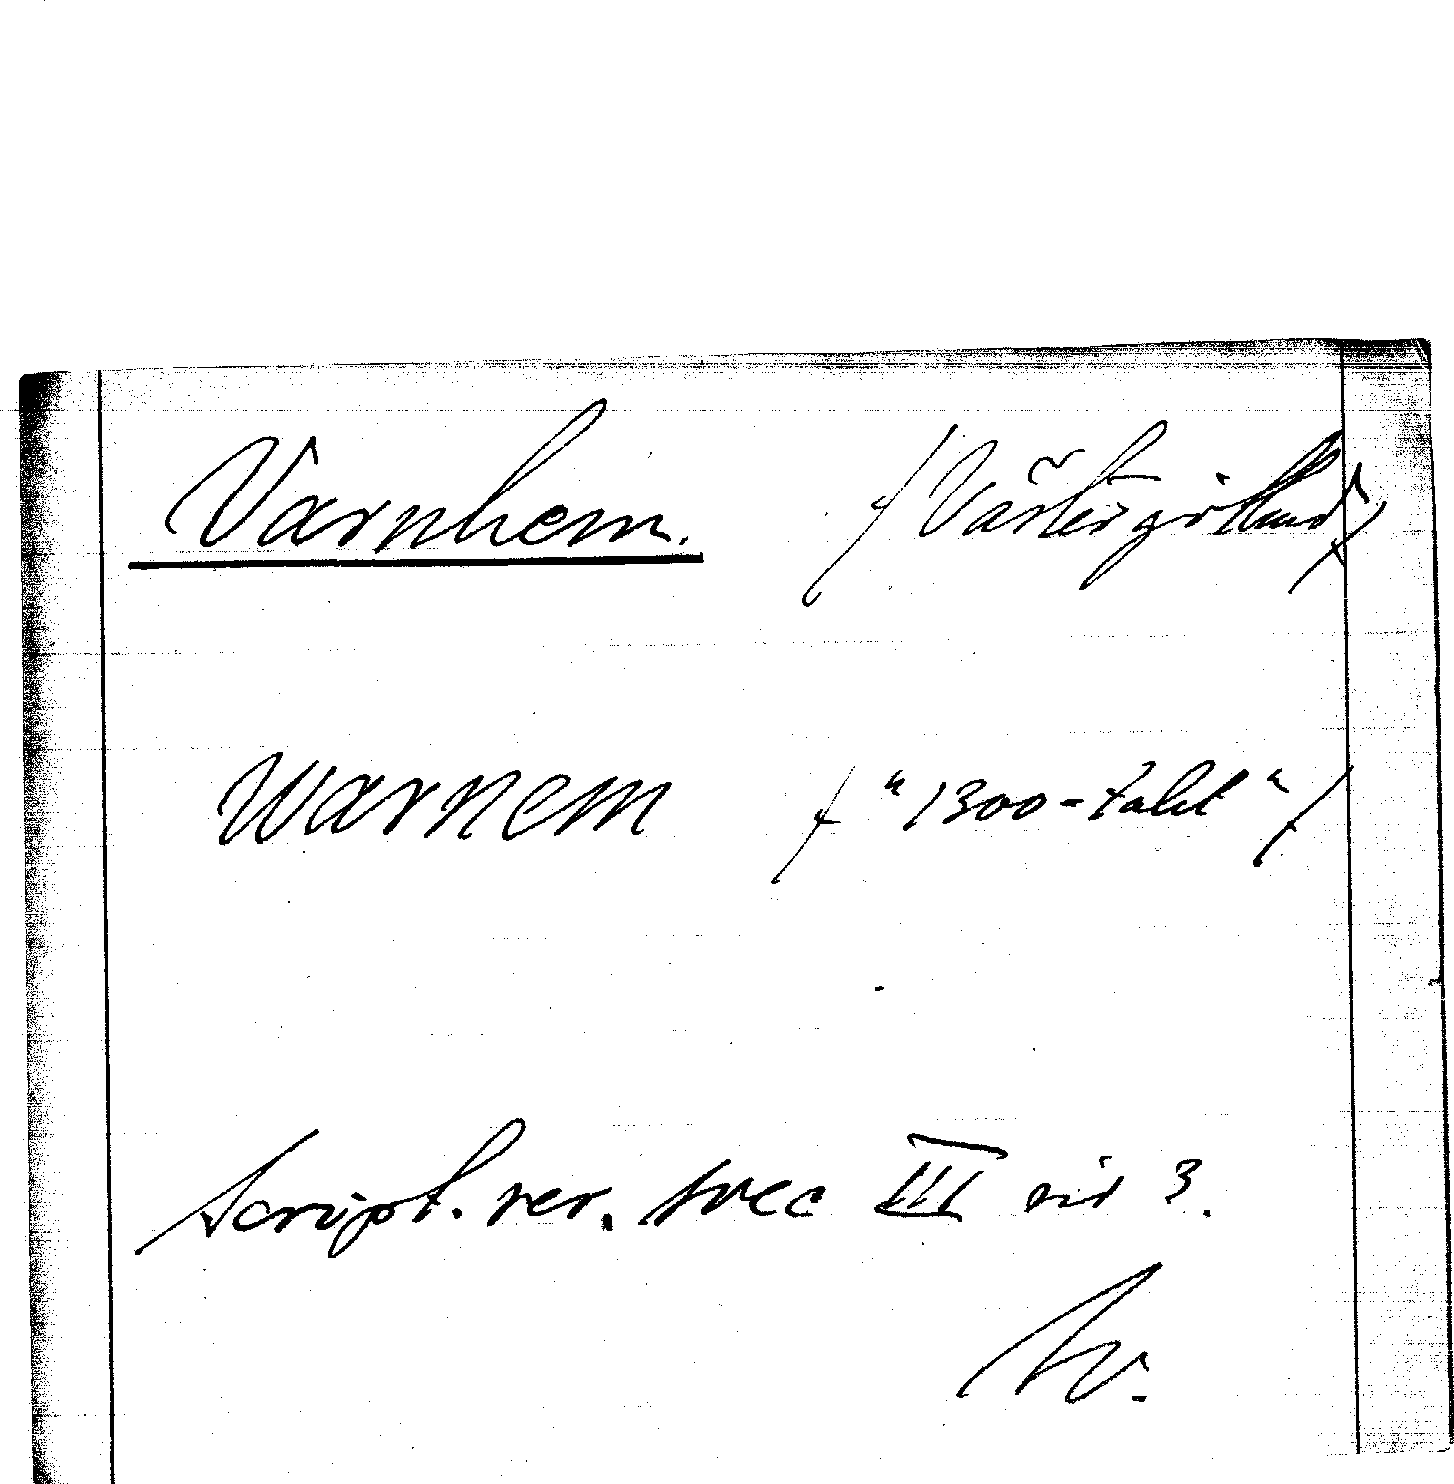 Varnhem. (Västergötland)
Warnem (“1300-talet“)
Script. rer. svec III sid 3.